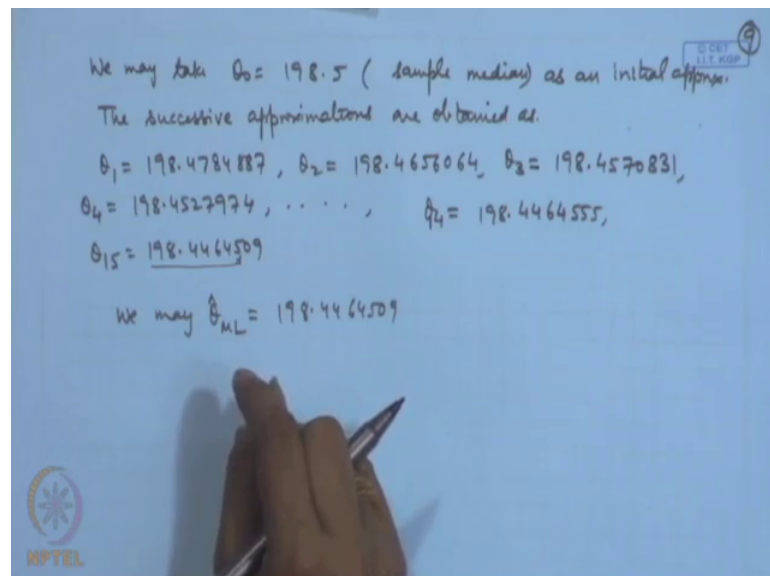 9
© CET
I.I.T. KGP
We may take θ₀ = 198.5 (sample median) as an initial approx.
The successive approximations are obtained as.
θ₁ = 198.4784887, θ₂ = 198.4656064, θ₃ = 198.4570831,
θ₄ = 198.4527974, . . . . . , θ₁₄ = 198.4464555,
θ₁₅ = 198.4464509
We may θ̂ML = 198.4464509
NPTEL